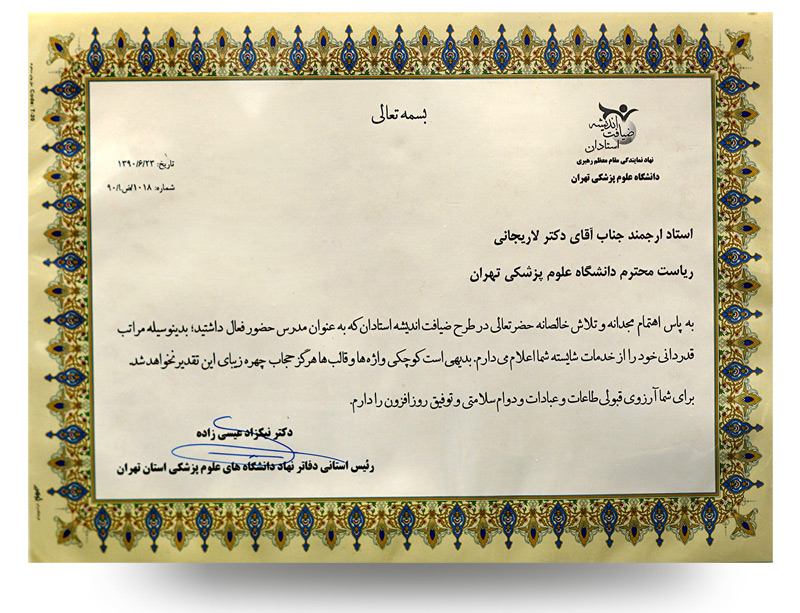 بسمه تعالی
ضیافت اندیشه
استادان
نهاد نمایندگی مقام معظم رهبری
دانشگاه علوم پزشکی تهران
تاریخ: ۱۳۹۰/۶/۲۳
شماره: ۱۰۱۸/ض.ا/۹۰
استاد ارجمند جناب آقای دکتر لاریجانی
ریاست محترم دانشگاه علوم پزشکی تهران
به پاس اهتمام مجدانه و تلاش خالصانه حضرتعالی در طرح ضیافت اندیشه استادان که به عنوان مدرس حضور فعال داشتید؛ بدینوسیله مراتب
قدردانی خود را از خدمات شایسته شما اعلام می دارم. بدیهی است کوچکی واژه ها و قالب ها هرگز حجاب چهره زیبای این تقدیر نخواهد شد.
برای شما آرزوی قبولی طاعات و عبادات و دوام سلامتی و توفیق روز افزون را دارم.
دکتر نیکزاد عیسی زاده
رئیس استانی دفاتر نهاد دانشگاه های علوم پزشکی استان تهران